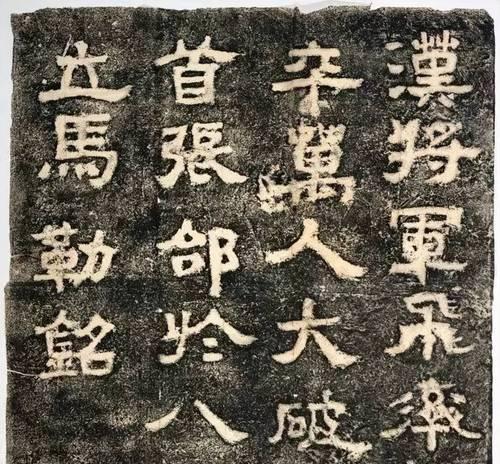 漢將軍飛率
卒萬人大破
首張郃於八
立馬勒銘